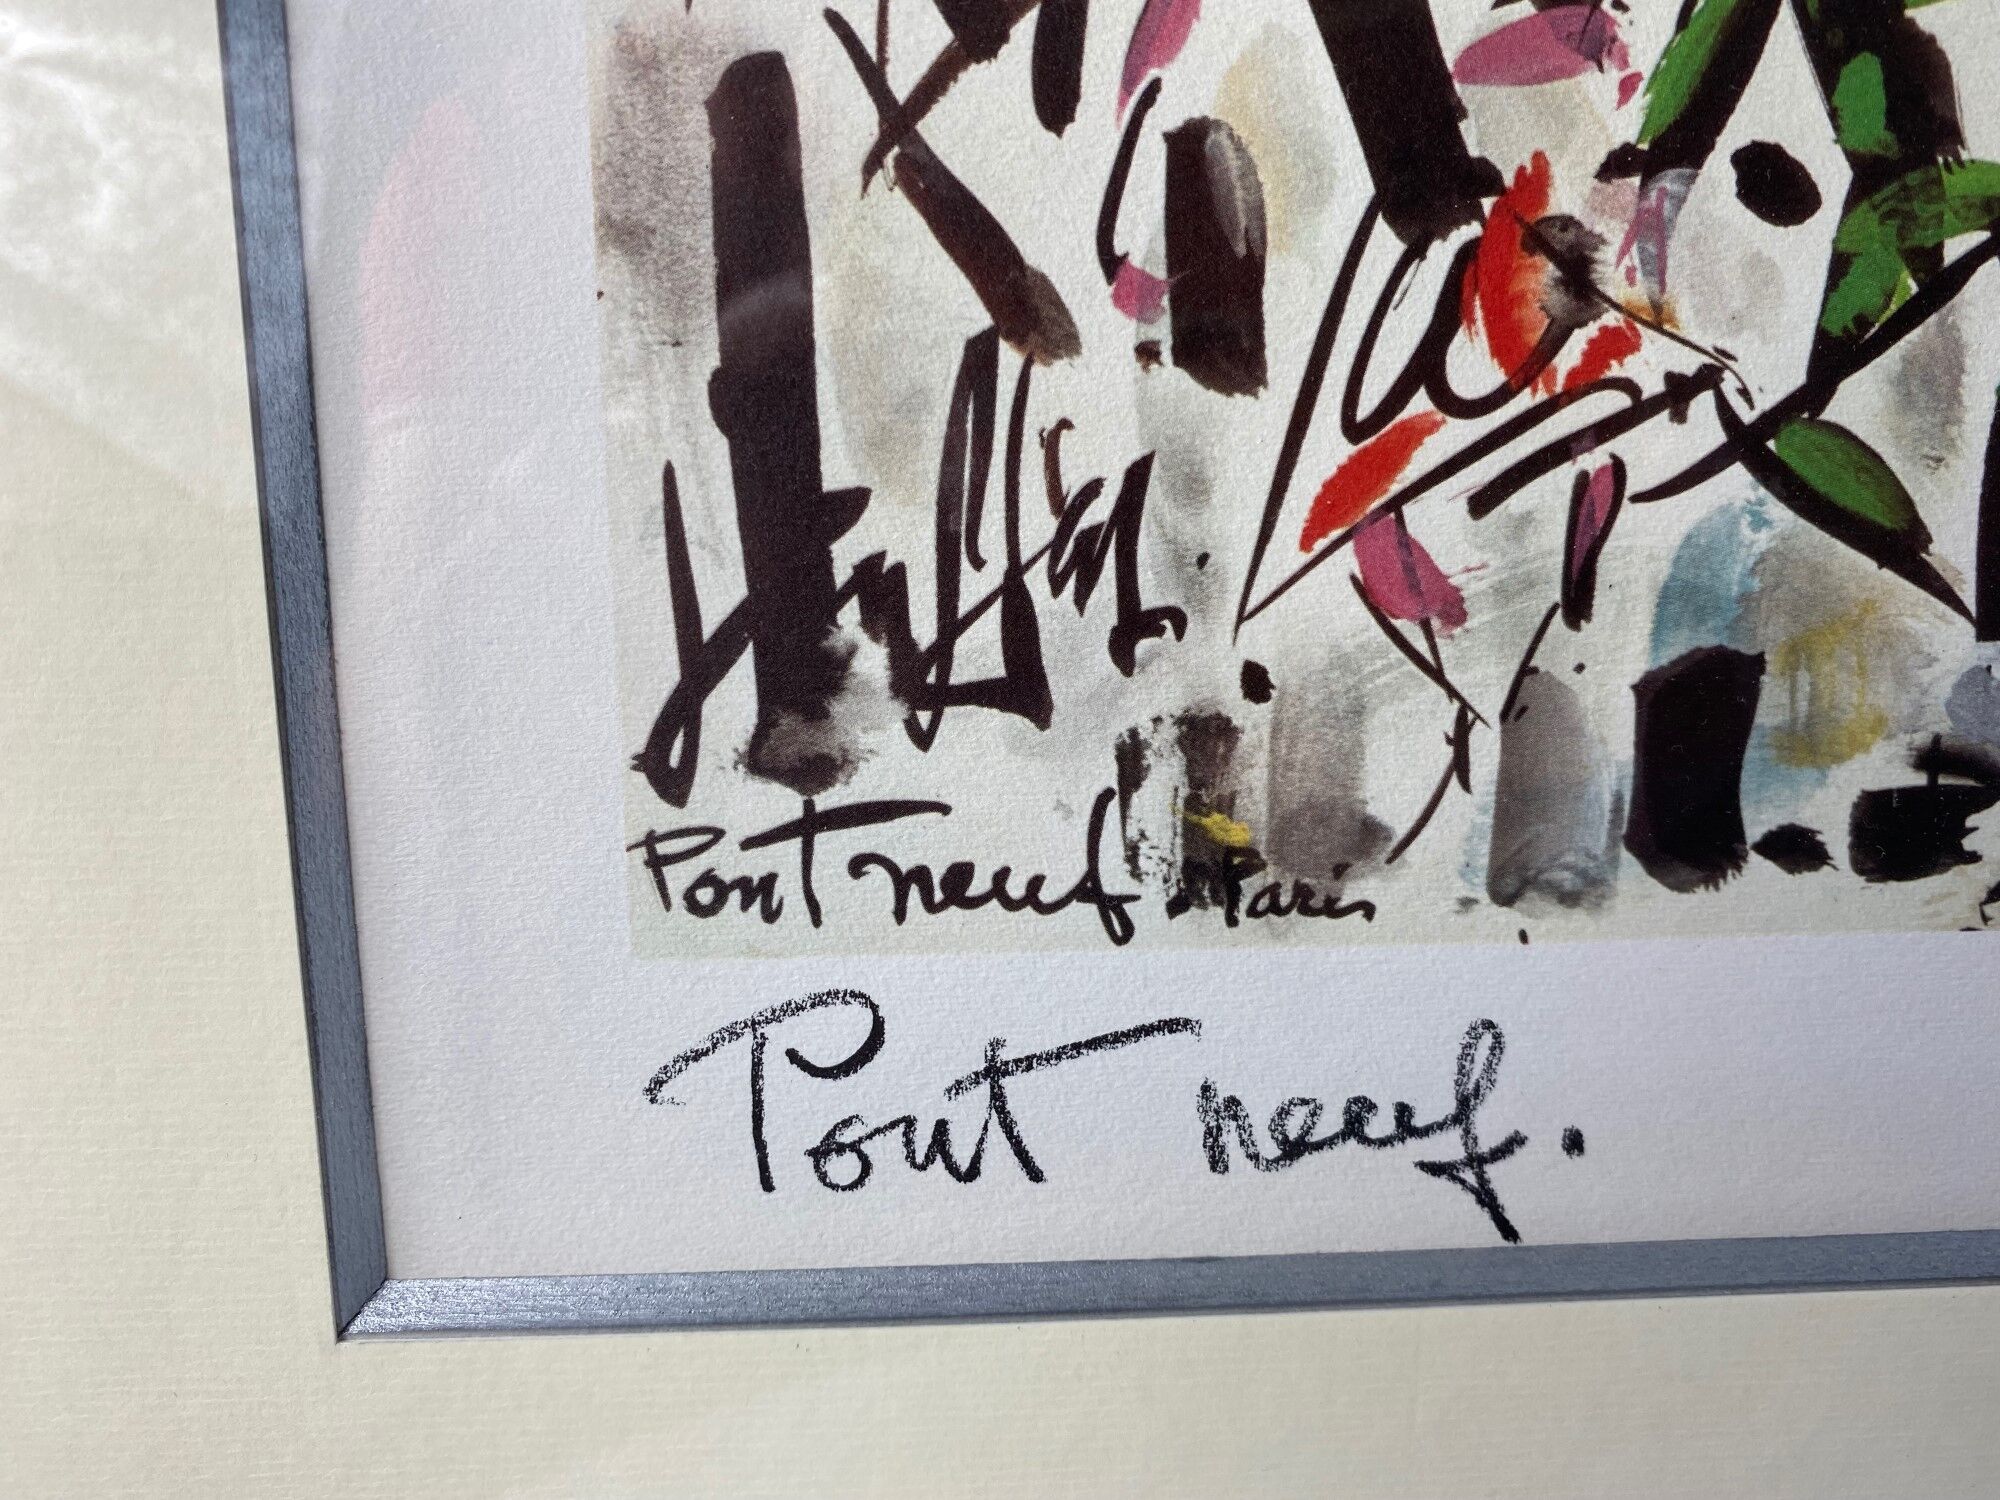 Pont neuf. Paris
Pont neuf.